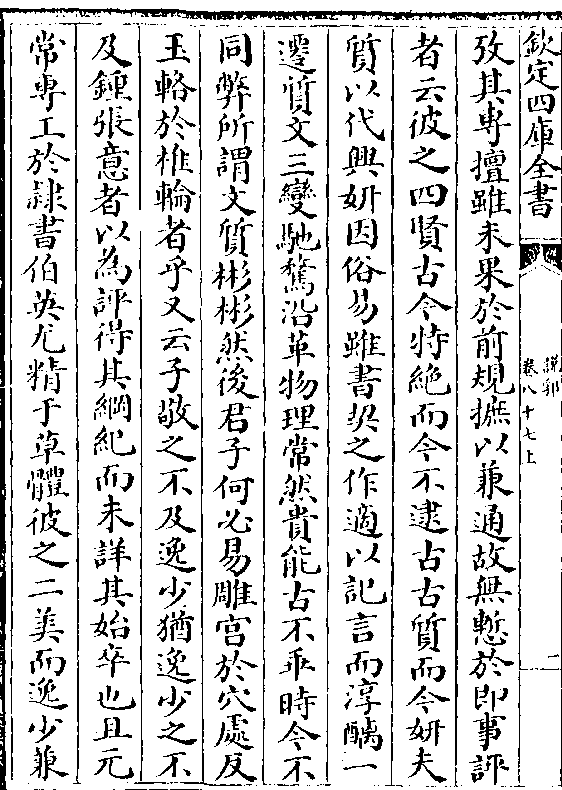 欽定四庫全書
說郛
卷八十七上
二
攷其專擅雖未果於前規摭以兼通故無慙於即事評
者云彼之四賢古今特絶而今不逮古古質而今妍夫
質以代興妍因俗易雖書契之作適以記言而淳醨一
遷質文三變馳騖沿革物理常然貴能古不乖時今不
同弊所謂文質彬彬然後君子何必易雕宫於穴處反
玉輅於椎輪者乎又云子敬之不及逸少猶逸少之不
及鍾張意者以為評得其綱紀而未詳其始卒也且元
常専工於𨽻書伯英尤精于草體彼之二美而逸少兼